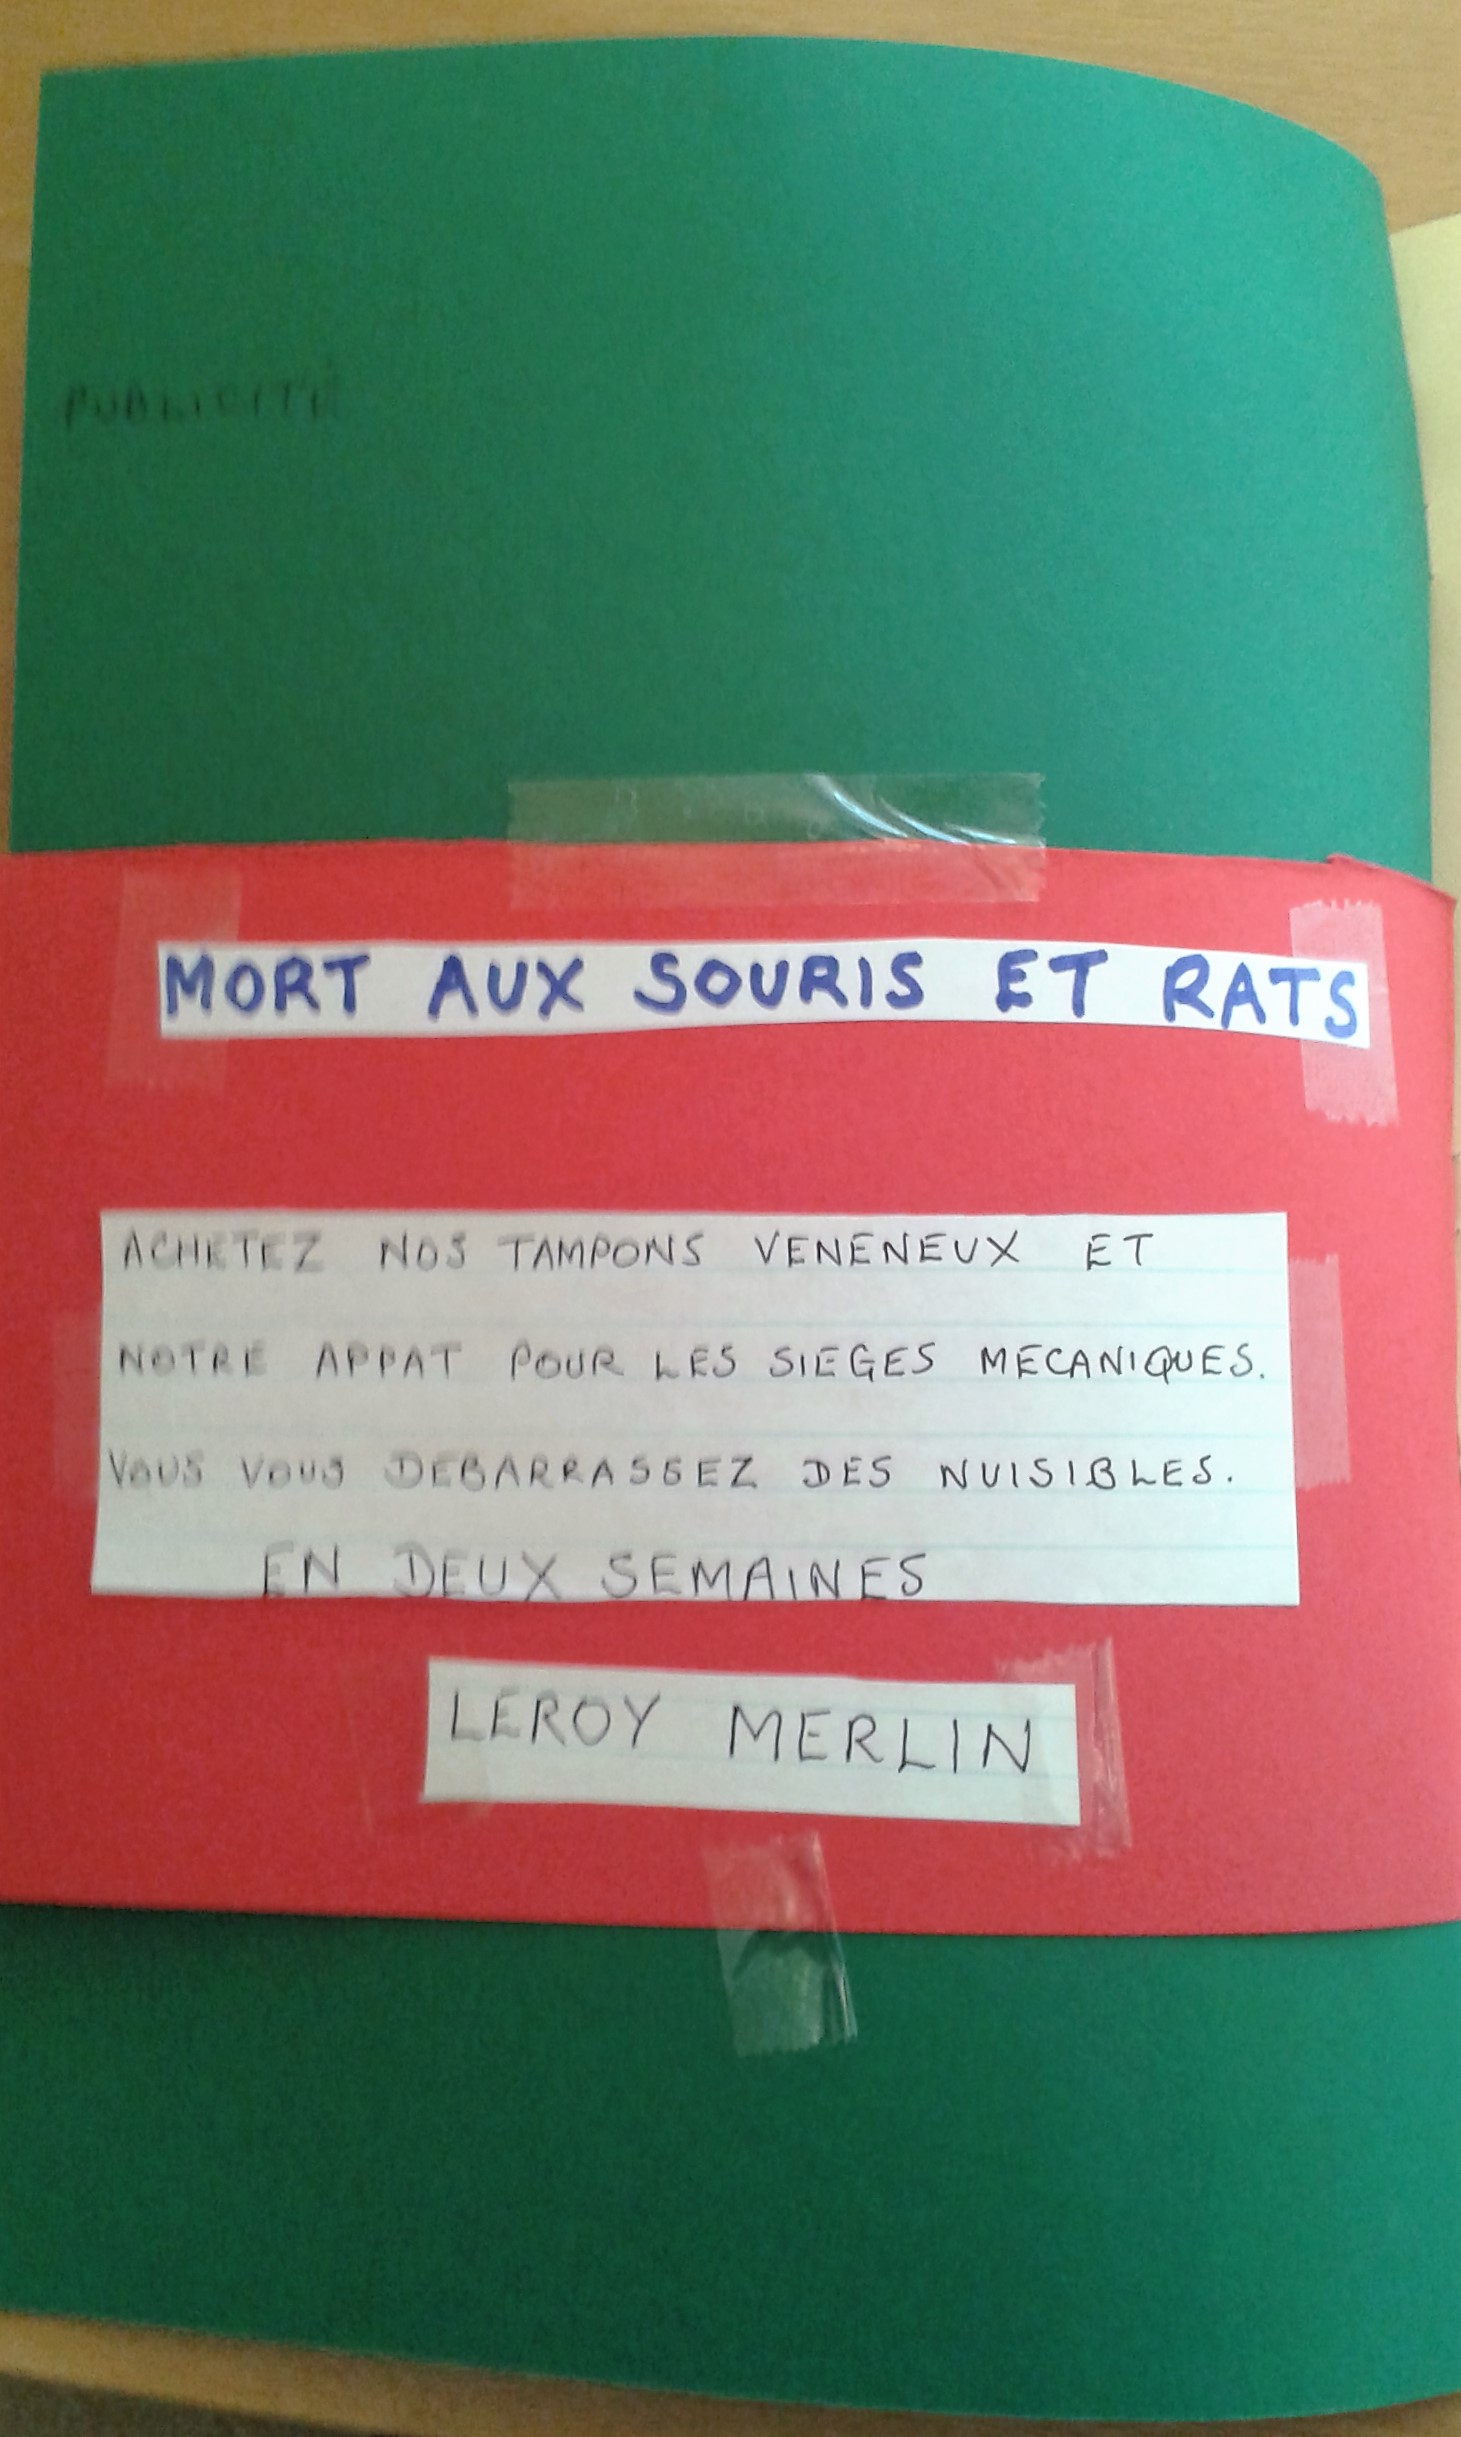 PUBLICITÉ
MORT AUX SOURIS ET RATS
ACHETEZ NOS TAMPONS VENENEUX ET
NOTRE APPAT POUR LES SIEGES MECANIQUES.
VOUS VOUS DEBARRASSEZ DES NUISIBLES.
EN DEUX SEMAINES
LEROY MERLIN